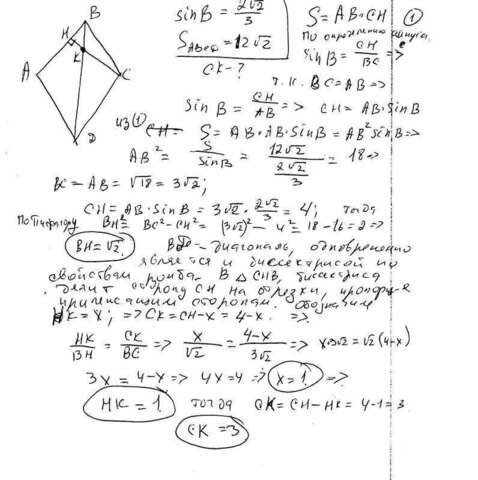 B
H
K
A
C
D
sin B = 2√2/3
S_ABCD = 12√2
CK - ?
S = AB · CH ①
По определению синуса
sin B = CH/BC =>
т.к. BC = AB =>
sin B = CH/AB => CH = AB · sin B
из ① S = AB · AB · sin B = AB² sin B =>
AB² = S/sin B = 12√2/(2√2/3) = 18 =>
BC = AB = √18 = 3√2;
CH = AB · sin B = 3√2 · 2√2/3 = 4; тогда
По Пифагору BH² = BC² - CH² = (3√2)² - 4² = 18 - 16 = 2 =>
BH = √2. BD - диагональ, одновременно
является и биссектрисой по
свойствам ромба. В △ CHB, биссектриса
делит сторону CH на отрезки, пропорц-е
прилежащим сторонам. Обозначим
HK = X; => CK = CH - X = 4 - X. =>
HK/BH = CK/BC => X/√2 = 4-X/3√2 => X·3√2 = √2(4-X)
3X = 4 - X => 4X = 4 => X = 1 =>
HK = 1 тогда CK = CH - HK = 4 - 1 = 3
CK = 3